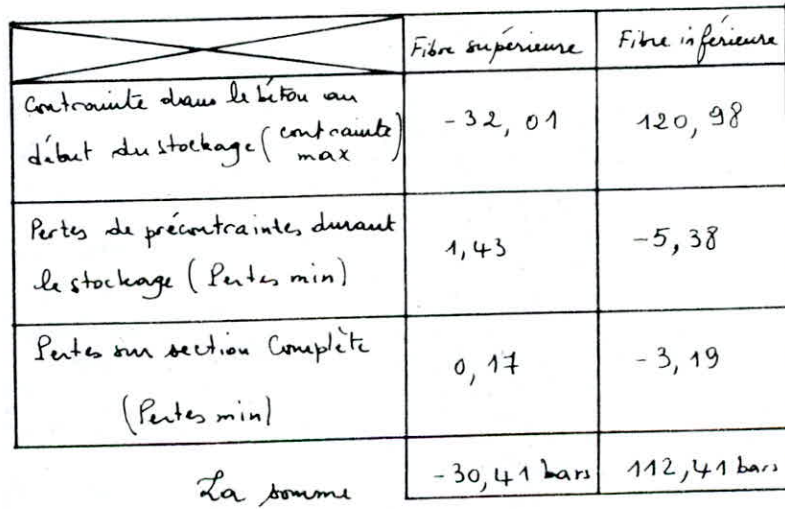 Fibre supérieure Fibre inférieure
Contrainte dans le béton au
début du stockage (contrainte max) -32,01 120,98
Pertes de précontraintes durant
le stockage (Pertes min) 1,43 -5,38
Pertes sur section Complète
(Pertes min) 0,17 -3,19
La somme -30,41 bars 112,41 bars